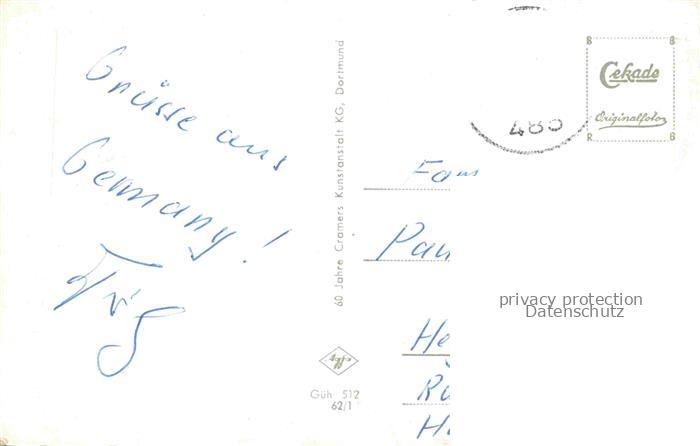 Grüsse aus
Germany!
60 Jahre Cramers Kunstanstalt KG, Dortmund
Agfa
Güh 512
62/1
Cekade
Originalfoto
480
Fam
Pau
He
Rü
H
privacy protection
Datenschutz